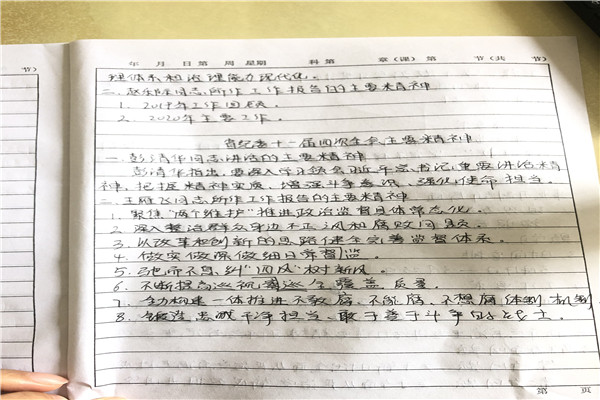 年 月 日 第 周 星期 科 第 章(课) 第 节(共 节)
节)
理体系和治理能力现代化。
二. 赵乐际同志所作工作报告的主要精神
1. 2019年工作回顾.
2. 2020年主要工作.
省纪委十一届四次全会主要精神
一. 彭清华同志讲话的主要精神
彭清华指出,要深入学习领会习近平总书记重要讲话精
神, 把握精神实质, 增强斗争意识, 强化使命担当。
二. 王雁飞同志所作工作报告的主要精神
1. 聚焦"两个维护"推进政治监督具体常态化.
2. 深入整治群众身边不正之风和腐败问题.
3. 以改革和创新的思路健全完善监督体系.
4. 做实做深做细日常监督.
5. 驰而不息纠"四风"树新风.
6. 不断提高巡视巡察全覆盖质量.
7. 全力构建一体推进不敢腐、不能腐、不想腐体制机制
8. 锻造忠诚干净担当、敢于善于斗争的战士.
第 页